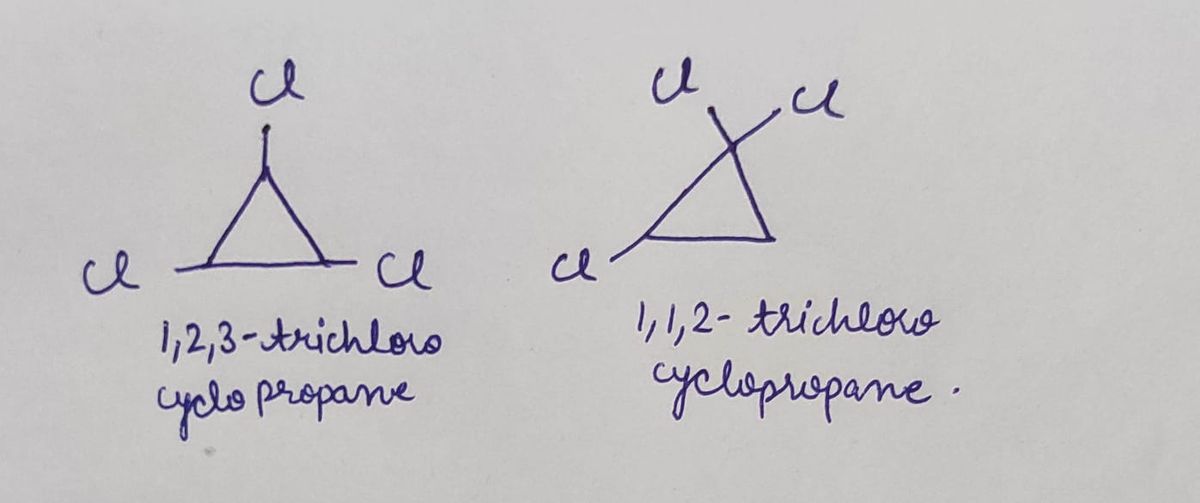 Cl
Cl Cl
1,2,3-trichloro
cyclo propane
Cl Cl
Cl
1,1,2- trichloro
cyclopropane.